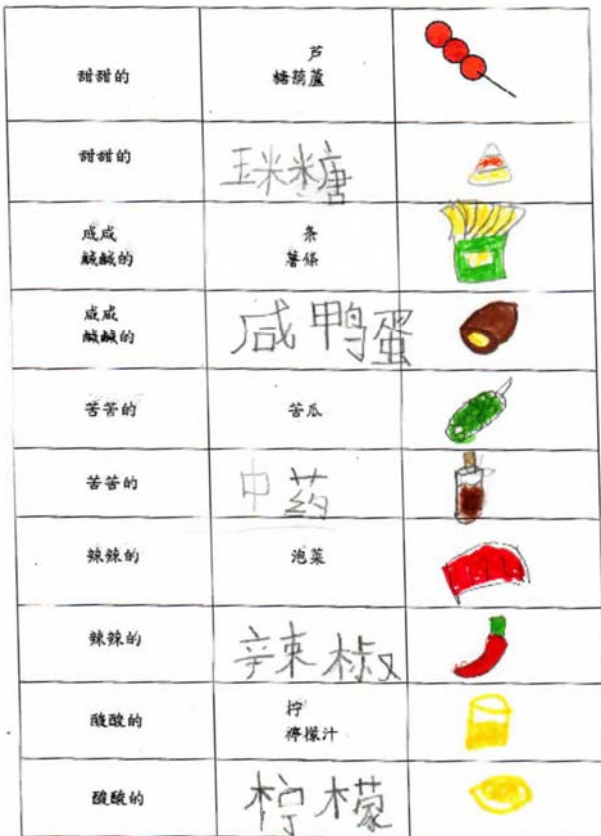 甜甜的
芦
糖葫蘆
甜甜的
玉米糖
咸咸
鹹鹹的
条
薯條
咸咸
鹹鹹的
咸鸭蛋
苦苦的
苦瓜
苦苦的
中药
辣辣的
泡菜
辣辣的
辣椒
酸酸的
柠
檸檬汁
酸酸的
柠檬